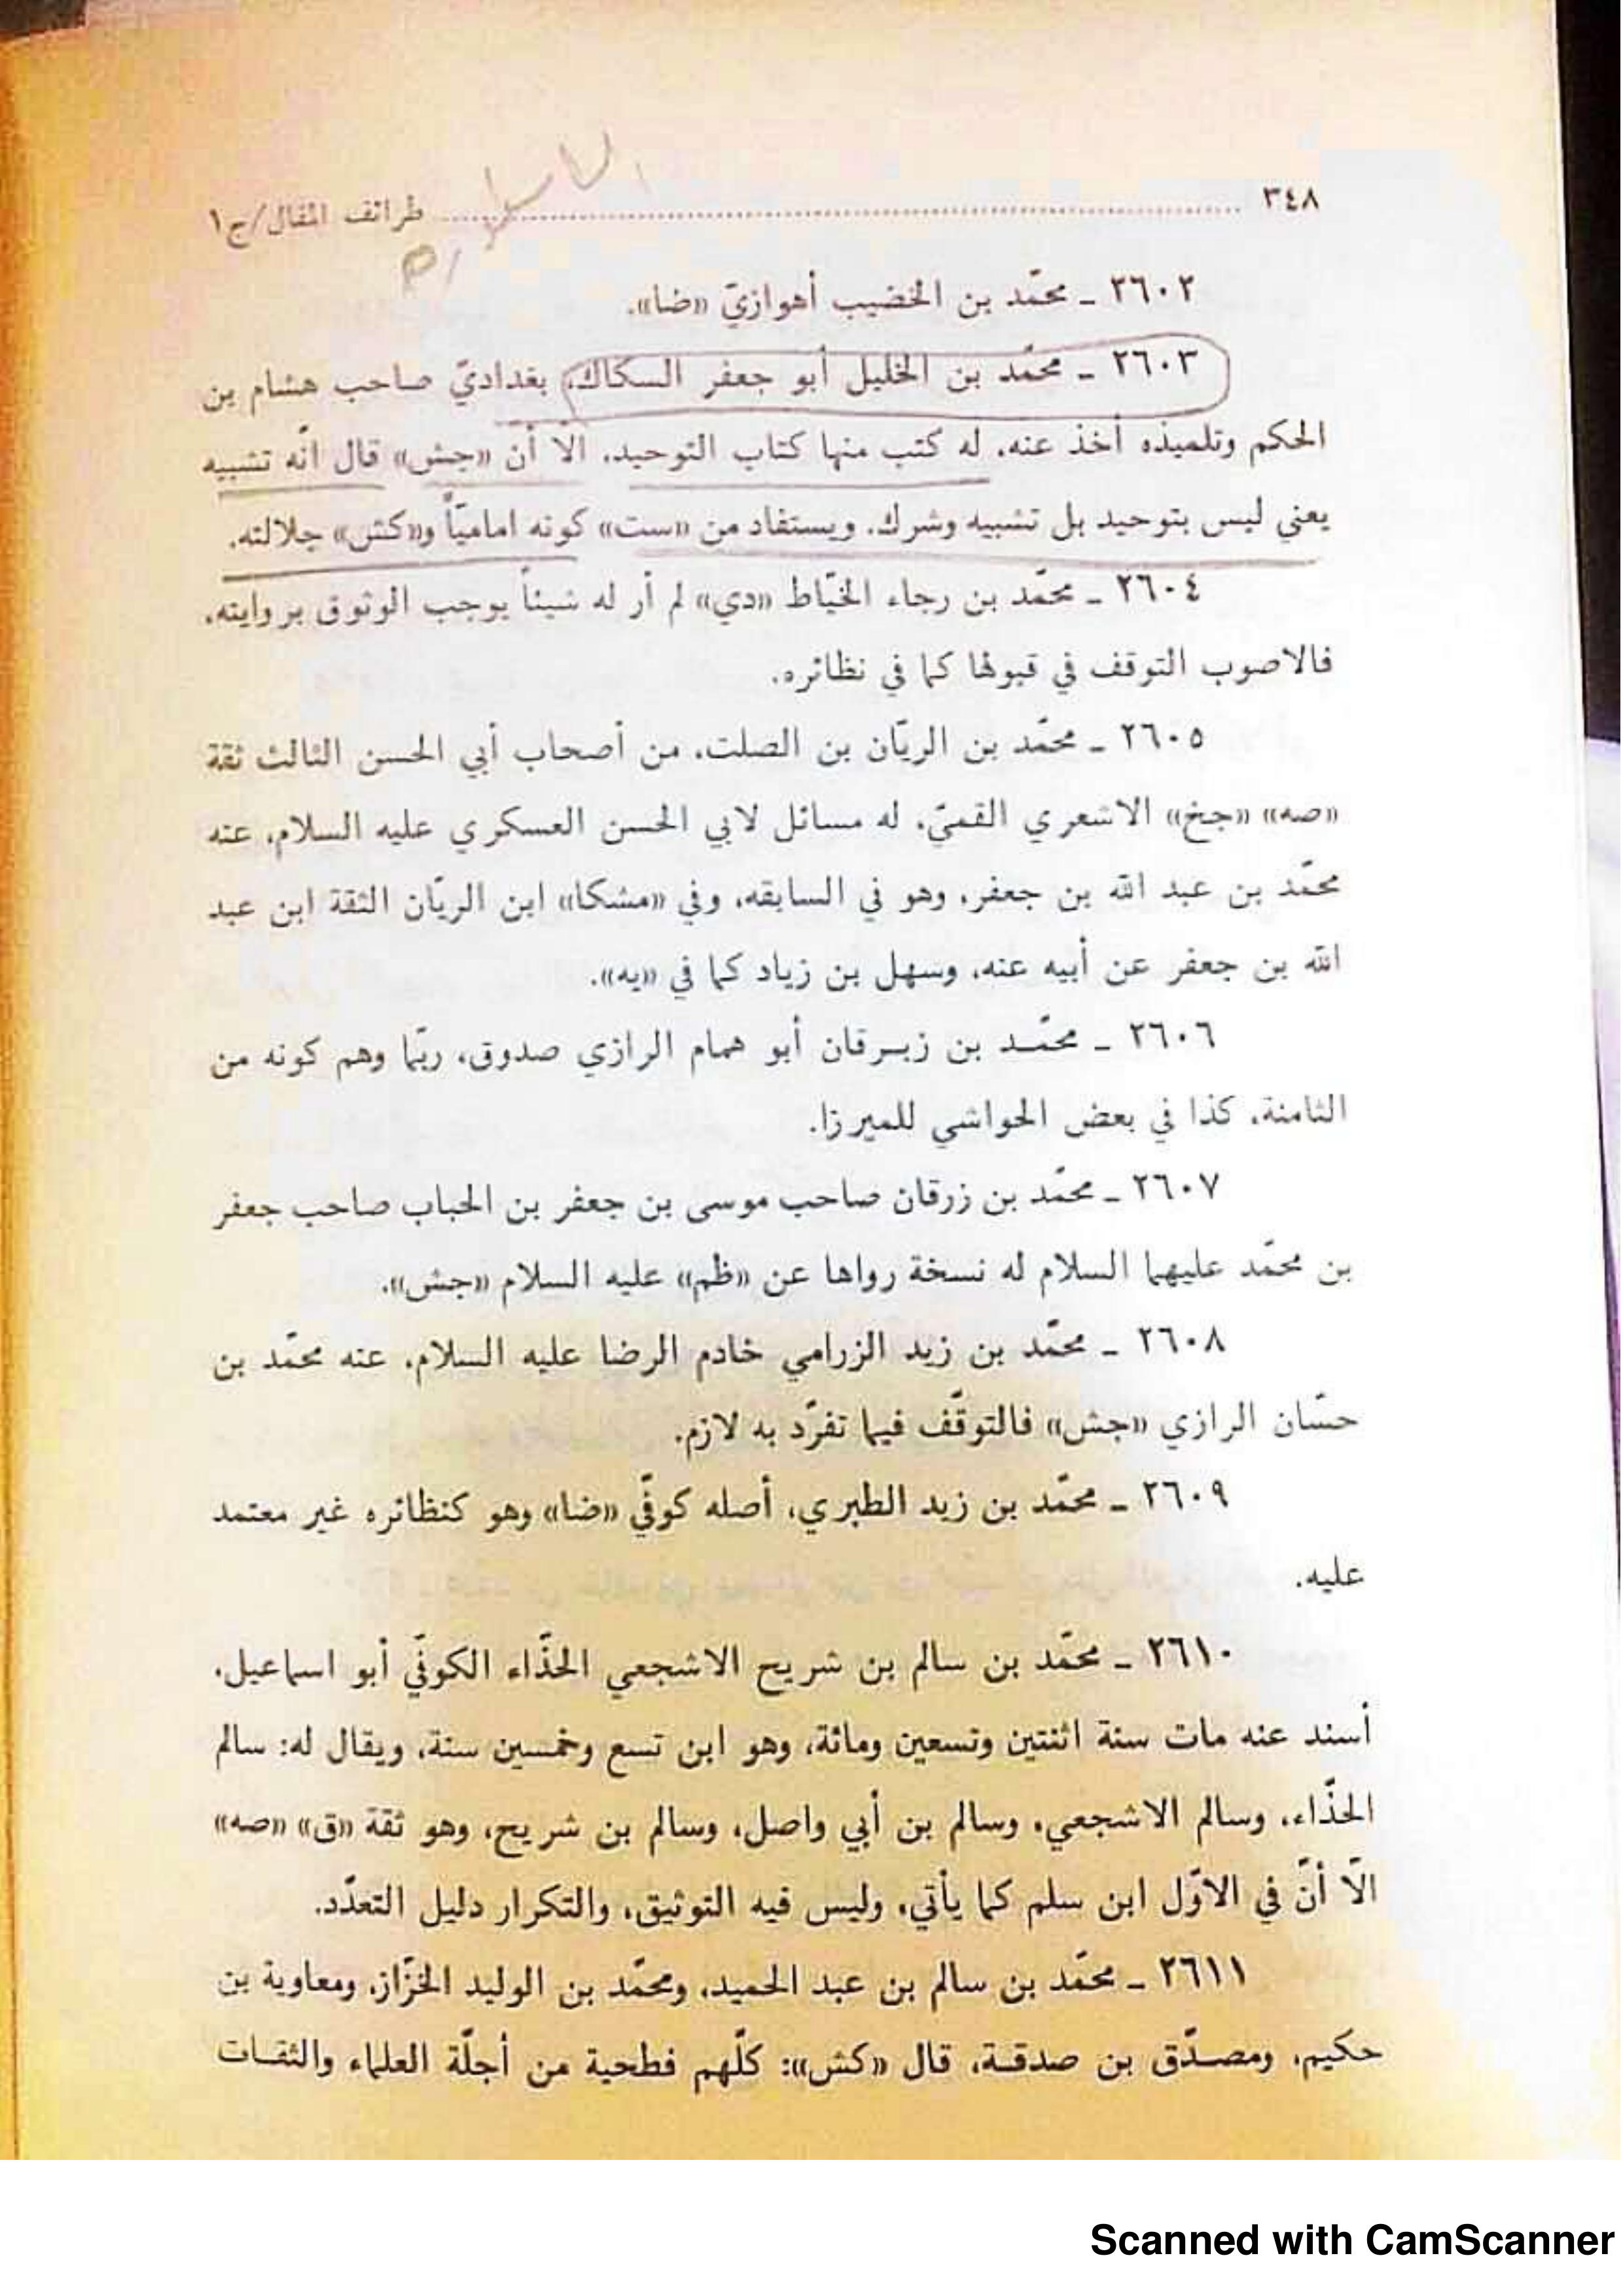 ٣٤٨ ........................ طرائف المقال/ج١
٢٦٠٢ ـ محمّد بن الخضيب أهوازيّ «ضا».
٢٦٠٣ ـ محمّد بن الخليل أبو جعفر السكاك، بغداديّ صاحب هشام بن
الحكم وتلميذه أخذ عنه، له كتب منها كتاب التوحيد، الّا أن «جش» قال انّه تشبيه
يعني ليس بتوحيد بل تشبيه وشرك. ويستفاد من «ست» كونه اماميّاً و«كش» جلالته.
٢٦٠٤ ـ محمّد بن رجاء الخيّاط «دي» لم أر له شيئاً يوجب الوثوق بروايته،
فالاصوب التوقف في قبولها كما في نظائره.
٢٦٠٥ ـ محمّد بن الريّان بن الصلت، من أصحاب أبي الحسن الثالث ثقة
«صه» «جخ» الاشعري القميّ، له مسائل لابي الحسن العسكري عليه السلام، عنه
محمّد بن عبد الله بن جعفر، وهو في السابقه، وفي «مشكا» ابن الريّان الثقة ابن عبد
الله بن جعفر عن أبيه عنه، وسهل بن زياد كما في «يه».
٢٦٠٦ ـ محمّد بن زبرقان أبو همام الرازي صدوق، ربّما وهم كونه من
الثامنة، كذا في بعض الحواشي للميرزا.
٢٦٠٧ ـ محمّد بن زرقان صاحب موسى بن جعفر بن الحباب صاحب جعفر
بن محمّد عليهما السلام له نسخة رواها عن «ظم» عليه السلام «جش».
٢٦٠٨ ـ محمّد بن زيد الزرامي خادم الرضا عليه السلام، عنه محمّد بن
حسّان الرازي «جش» فالتوقّف فيما تفرّد به لازم.
٢٦٠٩ ـ محمّد بن زيد الطبري، أصله كوفّي «ضا» وهو كنظائره غير معتمد
عليه.
٢٦١٠ ـ محمّد بن سالم بن شريح الاشجعي الحذّاء الكوفّي أبو اسماعيل،
أسند عنه مات سنة اثنتين وتسعين ومائة، وهو ابن تسع وخمسين سنة، ويقال له: سالم
الحذّاء، وسالم الاشجعي، وسالم بن أبي واصل، وسالم بن شريح، وهو ثقة «ق» «صه»
الّا أنّ في الاوّل ابن سلم كما يأتي، وليس فيه التوثيق، والتكرار دليل التعدّد.
٢٦١١ ـ محمّد بن سالم بن عبد الحميد، ومحمّد بن الوليد الخزّاز، ومعاوية بن
حكيم، ومصدّق بن صدقة، قال «كش»: كلّهم فطحية من أجلّة العلماء والثقات
Scanned with CamScanner